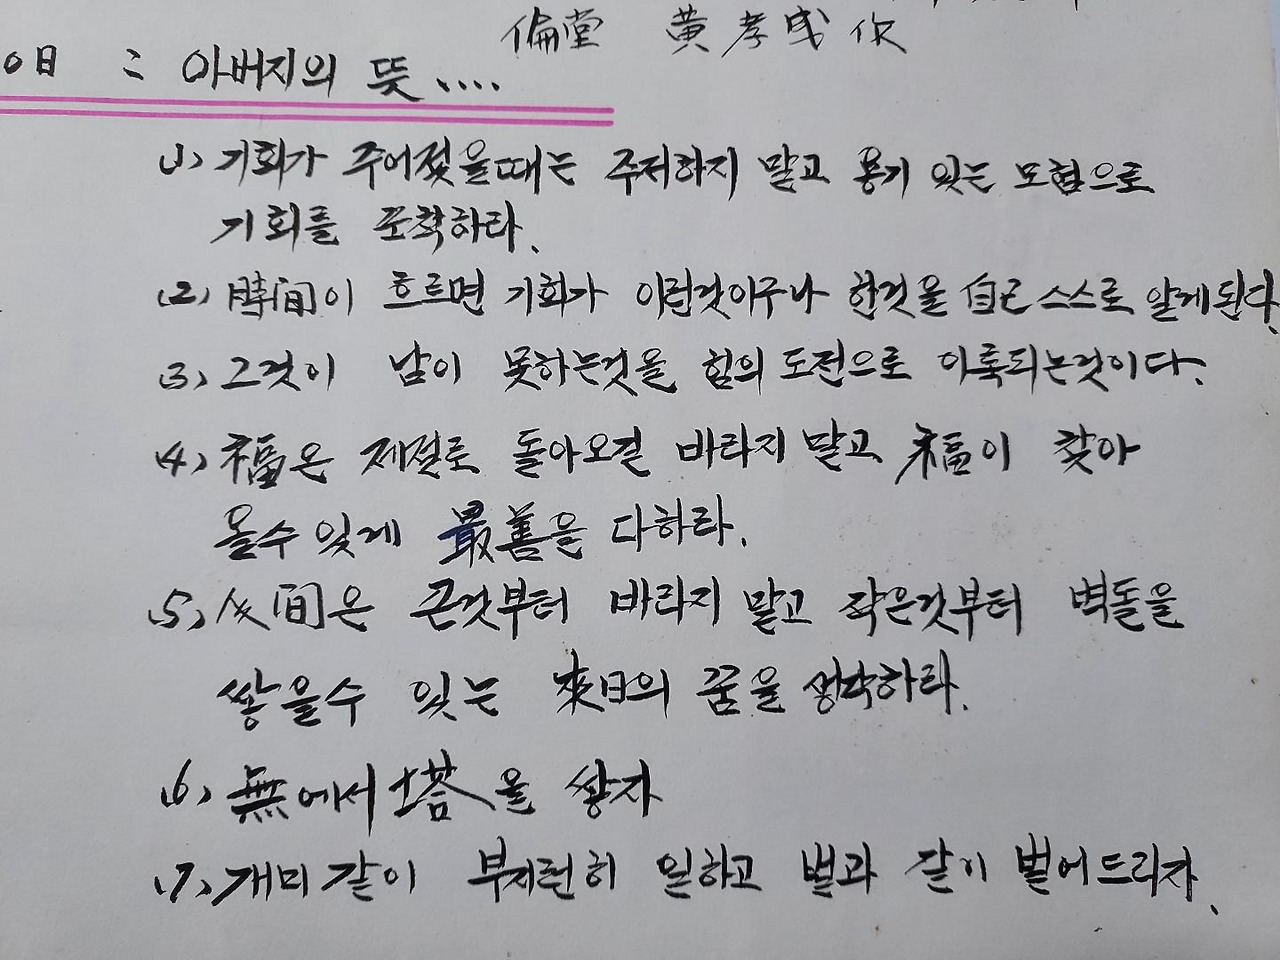 倫堂 黄孝成 作
0日 : 아버지의 뜻....
(1) 기회가 주어젖을때는 주저하지 말고 용기 있는 모험으로
기회를 포착하라.
(2) 時間이 흐르면 기회가 이런것이구나 한것을 自己 스스로 알게된다.
(3) 그것이 남이 못하는것을 힘의 도전으로 이룩되는것이다.
(4) 福은 제절로 돌아오길 바라지 말고 福이 찾아
올수 잇게 最善을 다하라.
(5) 人間은 큰것부터 바라지 말고 작은것부터 벽돌을
쌓을수 잇는 來日의 꿈을 생각하라.
(6) 無에서 塔을 쌓자
(7) 개미 같이 부지런히 일하고 벌과 같이 벌어드리자.